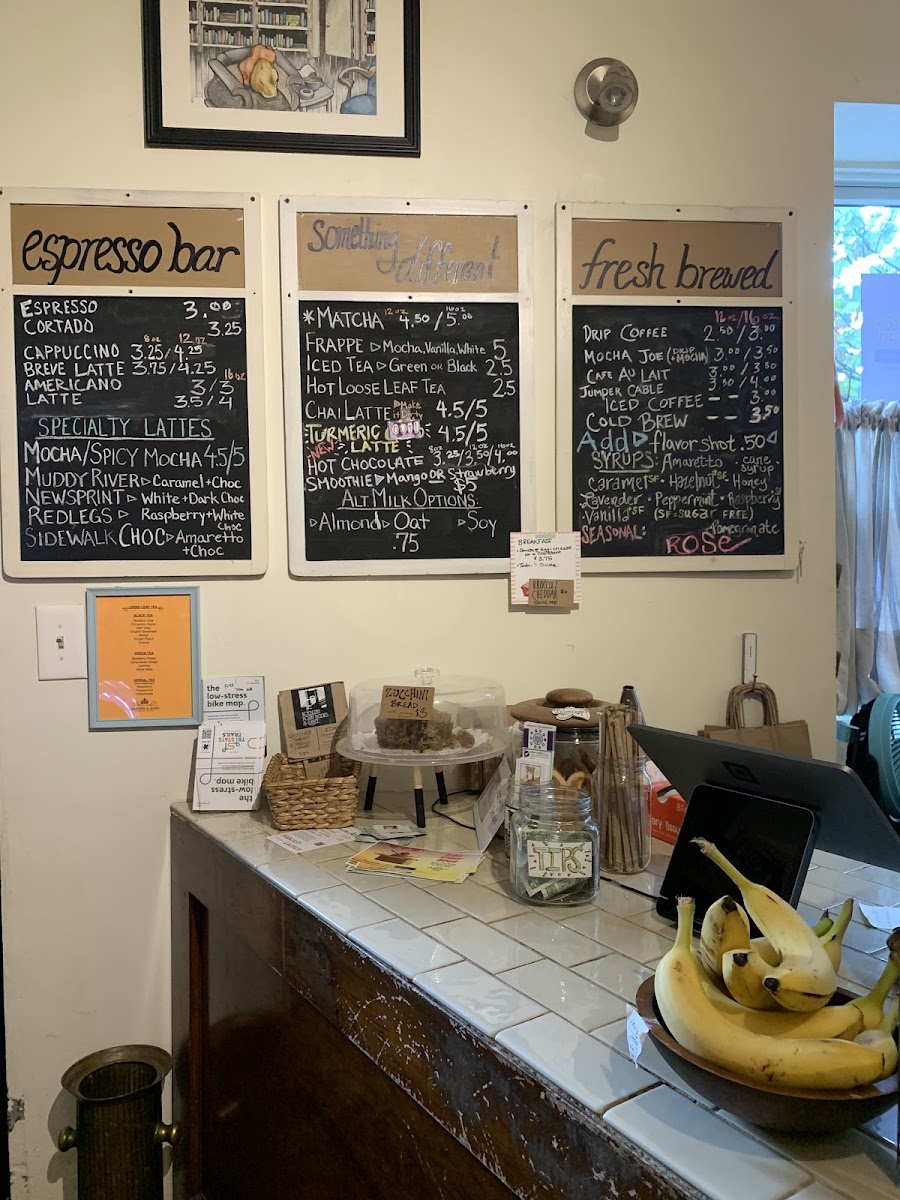 espresso bar
ESPRESSO 3.00
CORTADO 3.25
8 oz 12 oz
CAPPUCCINO 3.25/4.25
BREVE LATTE 3.75/4.25
16 oz
AMERICANO 3/3
LATTE 3.5/4
SPECIALTY LATTES
MOCHA/SPICY MOCHA 4.5/5
MUDDY RIVER ▹ CARAMEL + CHOC
NEWSPRINT ▹ WHITE + DARK CHOC
REDLEGS ▹ RASPBERRY + WHITE CHOC
SIDEWALK CHOC ▹ AMARETTO + CHOC
something different
12 oz 16 oz
*MATCHA 4.50/5.00
FRAPPE ▹ MOCHA, VANILLA, WHITE 5
ICED TEA ▹ GREEN OR BLACK 2.5
HOT LOOSE LEAF TEA 2.5
CHAI LATTE ▹ Make it Dirty 4.5/5
TURMERIC LATTE 4.5/5
NEW!
8 oz 12 oz 16 oz
HOT CHOCOLATE 3.25/3.50/4.00
SMOOTHIE ▹ MANGO OR Strawberry $5
ALT MILK OPTIONS:
▹ Almond ▹ Oat ▹ Soy
.75
fresh brewed
12 oz/16 oz
DRIP COFFEE 2.50/3.00
MOCHA JOE (DRIP + MOCHA) 3.00/3.50
CAFE AU LAIT 3.00/3.50
JUMPER CABLE 3.50/4.00
ICED COFFEE -- 3.00
COLD BREW -- 3.50
Add ▹ flavor shot .50
SYRUPS: Amaretto · cane syrup
caramel SF · Hazelnut SF · Honey
Lavender · Peppermint · Raspberry
Vanilla SF (SF = SUGAR FREE)
· Pomegranate
SEASONAL: ROSE
BREAKFAST
$3.75
BROCCOLI CHEDDAR
LOOSE LEAF TEA
BLACK TEA
GREEN TEA
HERBAL TEA
the low-stress bike map.
TRI STATE TRAILS
the low-stress bike map.
ZUCCHINI BREAD $3
TIPS